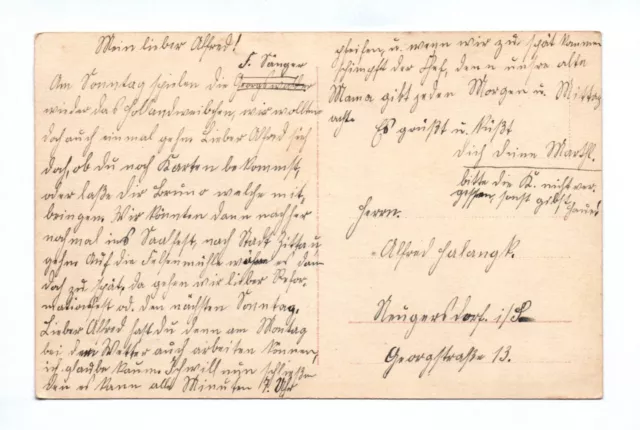 Mein lieber Alfred!
F. Sänger
Am Sonntag spielen die
wieder das Hollandweibchen, wir wollten
doch auch einmal gehn Lieber Alfred sieh
doch, ob du noch Karten bekommst,
oder laße Dir Bruno welche mit
bringen. Wir könnten dann nachher
nochmal ins Saalfest, nach Stadt Zittau
gehen Auf die Felsenmühle es dann
doch zu spät, da gehen wir lieber Refor-
mationsfest od. den nächsten Sonntag.
Lieber Alfred hast du denn am Montag
bei dem Wetter auch arbeiten können,
ich glaube kaum. Ich will nun schließen
denn es kann alle Minuten 7. Uhr
pfeifen, u. wenn wir zu spät kommen
schimpft der Chef, denn unsre alte
Mama gibt jeden Morgen u. Mittag
acht.
Es grüßt u. küßt
dich deine Marthl.
bitte die K. nicht ver-
gessen, sonst gibst Haues
Herrn.
Alfred
Neugersdorf. i/S.
Georgstraße 13.